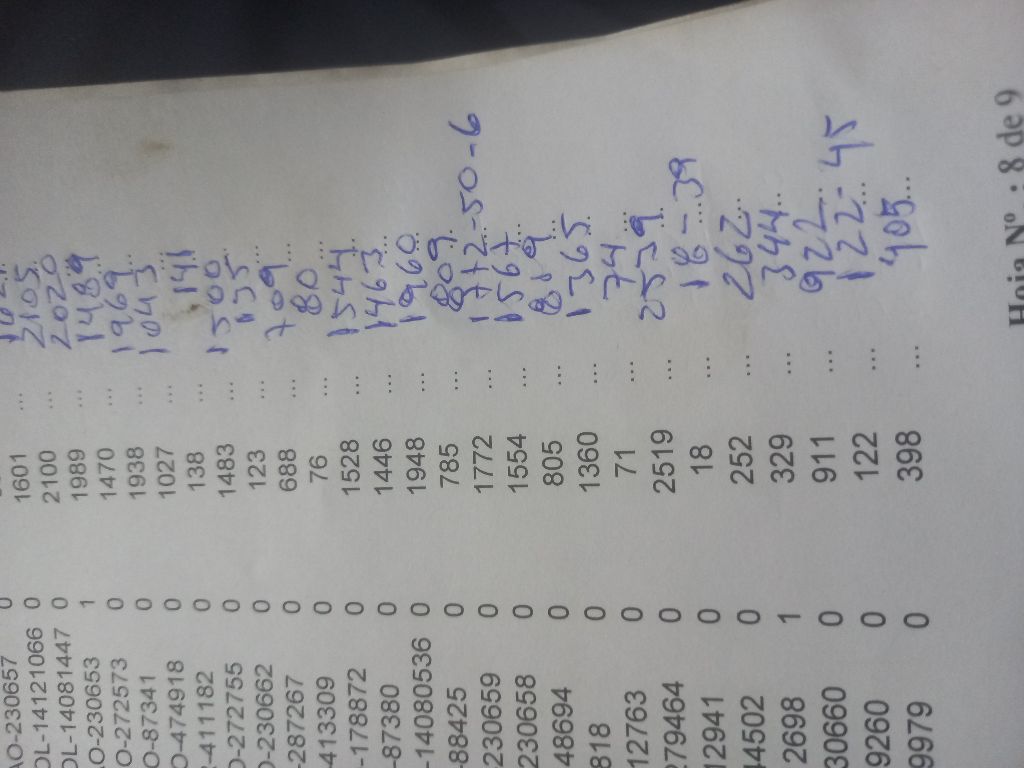 AO-230657 0
OL-14121066 0 1601 ...
OL-14081447 0 2100 ... 2105...
O-230653 1 1989 ... 2020
O-272573 0 1470 ... 1489
O-87341 0 1938 ... 1969...
O-474918 0 1027 ... 1043...
-411182 0 138 ... 141
O-272755 0 1483 ... 1500
O-230662 0 123 ... 135...
-287267 0 688 ... 709...
-413309 0 76 ... 80...
-178872 0 1528 ... 1544...
-87380 0 1446 ... 1463...
-14080536 0 1948 ... 1960...
-88425 0 785 ... 809...
230659 0 1772 ... 1772-50-6
230658 0 1554 ... 1567...
48694 0 805 ...
818 0 1360 ... 1365...
12763 0 71 ... 74...
279464 0 2519 ... 2539...
12941 0 18 ... 18-39
44502 0 252 ... 262...
2698 1 329 ... 344...
30660 0 911 ... 922...
9260 0 122 ... 122-45
9979 0 398 ... 405...
Hoja Nº : 8 de 9